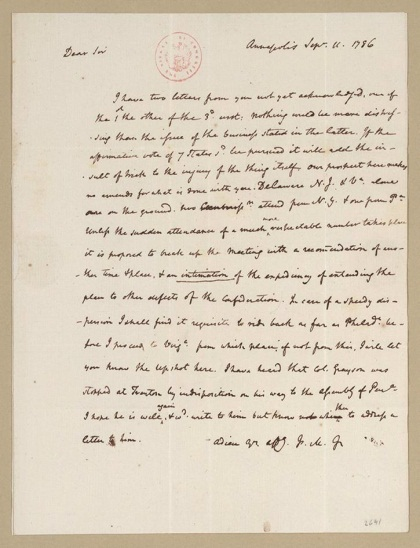 Annapolis Sepr. 11. 1786
Dear Sir
I have two letters from you not yet acknowledged, one of
the 1st the other of the 3d inst: nothing could be more distres-
-sing than the issue of the business stated in the latter. If the
affirmative vote of 7 States sd. be pursued it will add the in-
-sult of trick to the injury of the thing itself. Our prospect here makes
no amends for what is done with you. Delaware N. J. & Va. alone
are on the ground. two Commissrs. attend from N. Y. & one from Pa.
Unless the sudden attendance of a much more respectable number takes place
it is proposed to break up the Meeting with a recommendation of ano-
-ther time & place, & an intimation of the expediency of extending the
plan to other defects of the Confederation. In case of a speedy dis-
-persion I shall find it requisite to ride back as far as Philada. be-
fore I proceed to Virga. from which place, if not from this, I will let
you know the upshot here. I have heard that Col. Grayson was
stopped at Trenton by indisposition on his way to the Assembly of Pena.
I hope he is well again, & wd. write to him but know not whither to address a
letter to him.
Adieu yr. affy. J. M. Jr